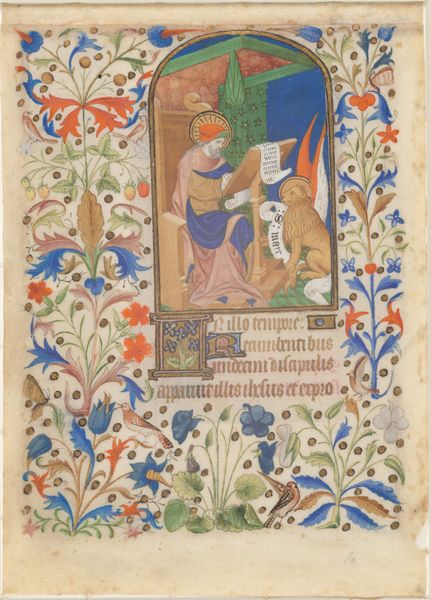 S. marc
IN illo tempore.
Recumbentibus
undecim discipulis
apparuit illis ihesus et expro